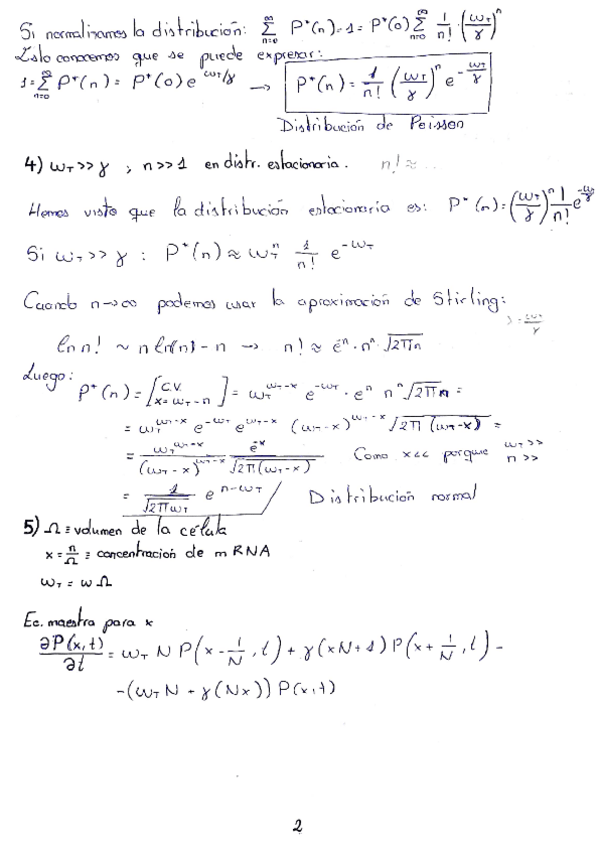 Si normalizamos la distribución: Σ_{n=0}^{∞} P*(n) = 1 = P*(0) Σ_{n=0}^{∞} 1/n! · (ω_T/γ)^n
Esto conocemos que se puede expresar:
1 = Σ_{n=0}^{∞} P*(n) = P*(0) e^{ω_T/γ} → P*(n) = 1/n! (ω_T/γ)^n e^{-ω_T/γ}
Distribución de Poisson
4) ω_T >> γ ; n >> 1 en distr. estacionaria. n! ≈
Hemos visto que la distribución estacionaria es: P*(n) = (ω_T/γ)^n 1/n! e^{-ω_T/γ}
Si ω_T >> γ : P*(n) ≈ ω_T^n 1/n! e^{-ω_T}
Cuando n→∞ podemos usar la aproximación de Stirling:
ln n! ~ n ln(n) - n → n! ≈ e^{-n} · n^n · √(2πn)
Luego:
P*(n) = [C.V. x = ω_T - n] = ω_T^{ω_T-x} e^{-ω_T} · e^n n^n √(2πn) =
= ω_T^{ω_T-x} e^{-ω_T} e^{ω_T-x} (ω_T-x)^{ω_T-x} √(2π(ω_T-x)) =
= ω_T^{ω_T-x}/(ω_T-x)^{ω_T-x} e^{-x}/√(2π(ω_T-x)) Como x<< porque ω_T>> n>>
= 1/√(2πω_T) e^{n-ω_T} Distribución normal
5) Ω ≡ volumen de la célula
x = n/Ω ≡ concentración de mRNA
ω_T = ωΩ
Ec. maestra para x
∂P(x,t)/∂t = ω_T N P(x - 1/N, t) + γ(xN+1) P(x + 1/N, t) -
-(ω_T N + γ(Nx)) P(x,t)
2